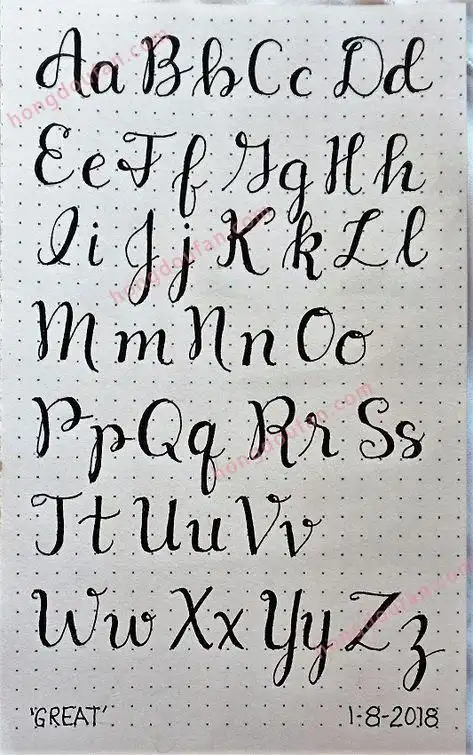 Aa Bb Cc Dd
Ee Ff Gg Hh
Ii Jj Kk Ll
Mm Nn Oo
Pp Qq Rr Ss
Tt Uu Vv
Ww Xx Yy Zz
'GREAT' 1-8-2018
hongdoufan.com
hongdoufan.com
hongdoufan.com
hongdoufan.com